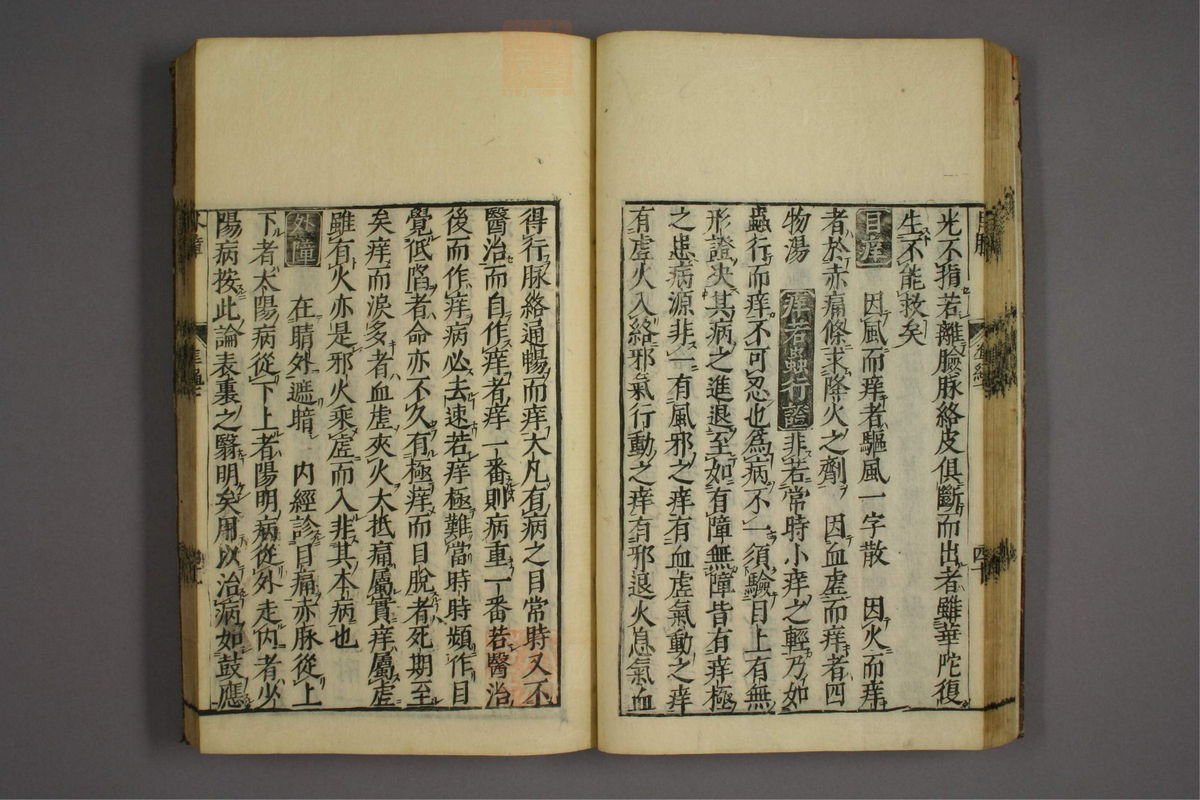 光不損若離臉脉絡皮俱斷而出者雖華陀復
生不能救矣
目痒　因風而痒者驅風一字散　因火而痒
者於赤痛條求降火之劑　因血虛而痒者四
物湯　痒若蟲行證　非若常時小痒之輕乃如
蟲行而痒不可忍也為病不一須驗目上有無
形證决其病之進退至如有障無障皆有痒極
之患病源非一有風邪之痒有血虛氣動之痒
有虛火入絡邪氣行動之痒有邪退火息氣血
得行脉絡通暢而痒大凡有病之目常時又不
醫治而自作痒者痒一番則病重一番若醫治
後而作痒病必去速若痒極難當時時頻作目
覺低陷者命亦不久有極痒而目脫者死期至
矣痒而淚多者血虛夾火大抵痛屬實痒屬虛
雖有火亦是邪火乘虛而入非其本病也
外障　在睛外遮暗　内經診目痛赤脉從上
下者太陽病從下上者陽明病從外走内者少
陽病按此論表裏之翳明矣用以治病如鼓應